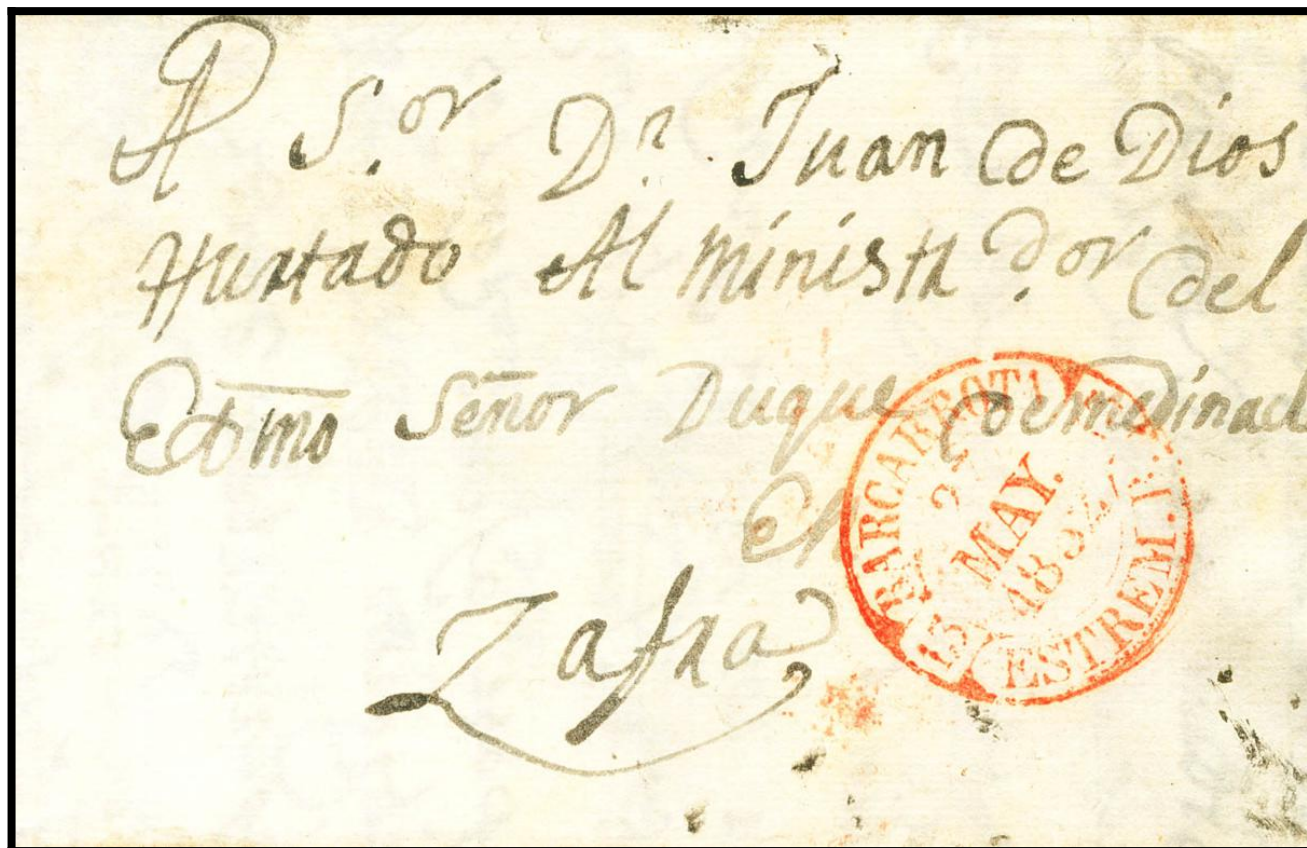 A S.or D.n Juan de Dios
Hurtado Alministr.dor del
Exmo Señor Duque demedinacel
en
Zafra
BARCARROTA
MAY.
185
ESTREM.